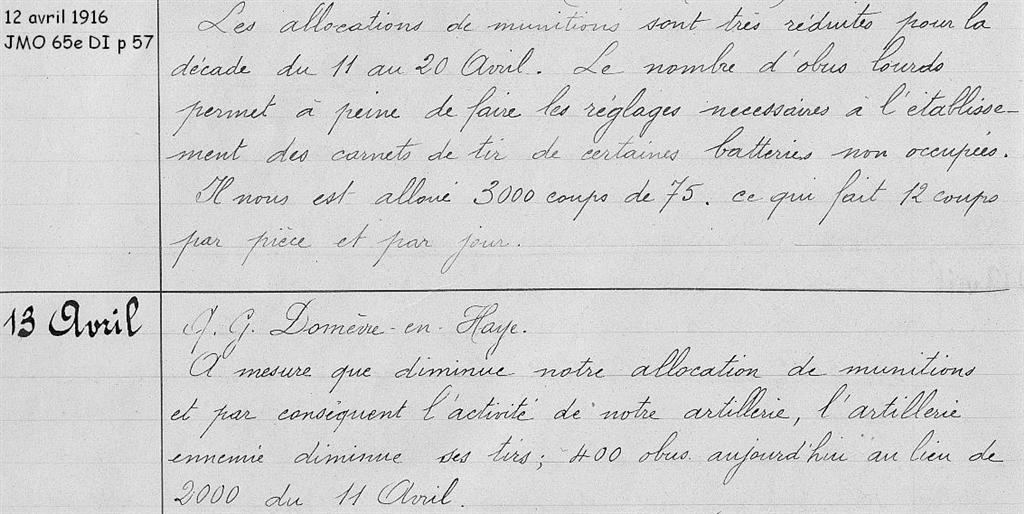 12 avril 1916
JMO 65e DI p 57
Les allocations de munitions sont très réduites pour la
décade du 11 au 20 Avril. Le nombre d'obus lourds
permet à peine de faire les réglages necessaires à l'établisse-
ment des carnets de tir de certaines batteries non occupées.
Il nous est alloué 3000 coups de 75. ce qui fait 12 coups
par pièce et par jour.
13 Avril
Q. G. Domèvre-en-Haye.
A mesure que diminue notre allocation de munitions
et par conséquent l'activité de notre artillerie, l'artillerie
ennemie diminue ses tirs; 400 obus aujourd'hui au lieu de
2000 du 11 Avril.